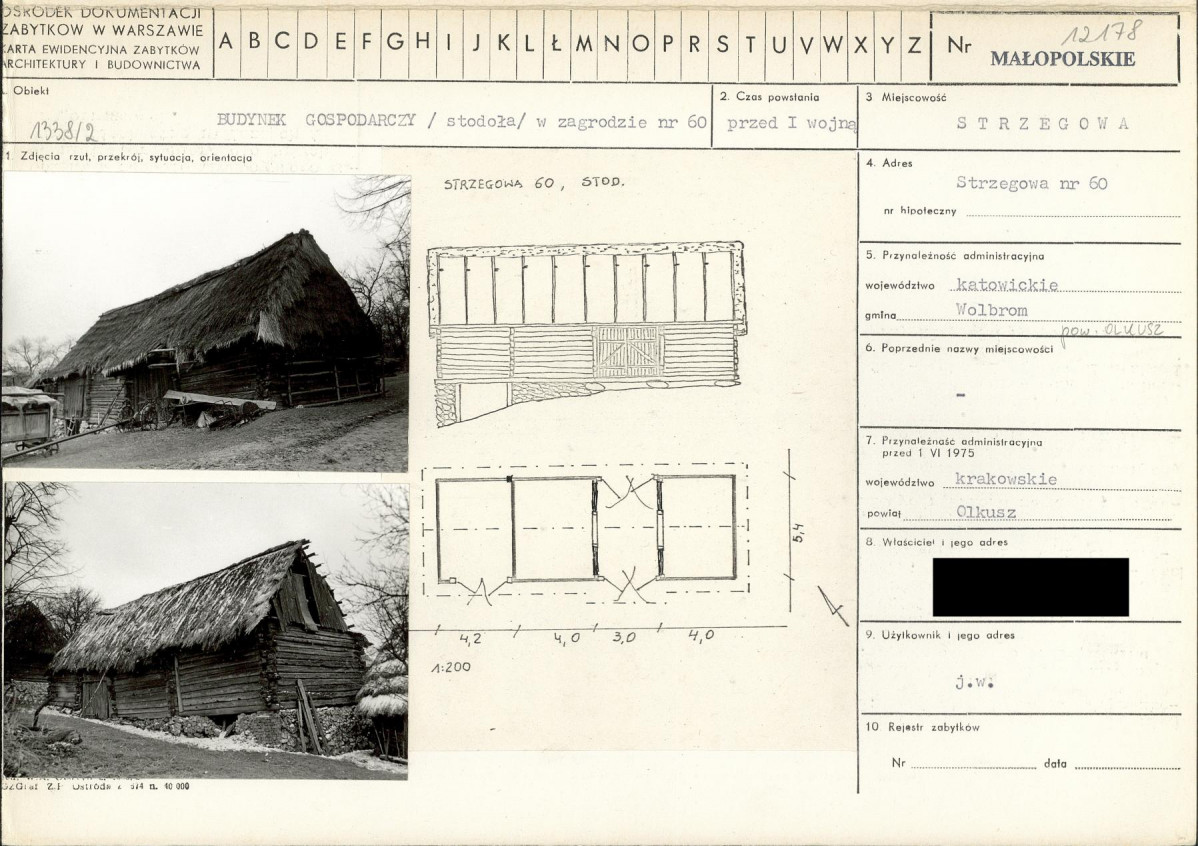 OŚRODEK DOKUMENTACJI
ZABYTKÓW W WARSZAWIE
KARTA EWIDENCYJNA ZABYTKÓW
ARCHITEKTURY I BUDOWNICTWA
A B C D E F G H I J K L Ł M N O P R S T U V W X Y Z
Nr 12178
MAŁOPOLSKIE
1. Obiekt
1338/2
BUDYNEK GOSPODARCZY / stodoła/ w zagrodzie nr 60
2. Czas powstania
przed I wojną
3 Miejscowość
STRZEGOWA
1. Zdjęcia rzut, przekrój, sytuacja, orientacja
STRZEGOWA 60, STOD.
5,4
4,2 4,0 3,0 4,0
1:200
4. Adres
Strzegowa nr 60
nr hipoteczny
5. Przynależność administracyjna
województwo katowickie
gmina Wolbrom
pow. OLKUSZ
6. Poprzednie nazwy miejscowości
-
7. Przynależność administracyjna
przed 1 VI 1975
województwo krakowskie
powiat Olkusz
8. Właściciel i jego adres
9. Użytkownik i jego adres
j.w.
10 Rejestr zabytków
Nr data
n. 40 000